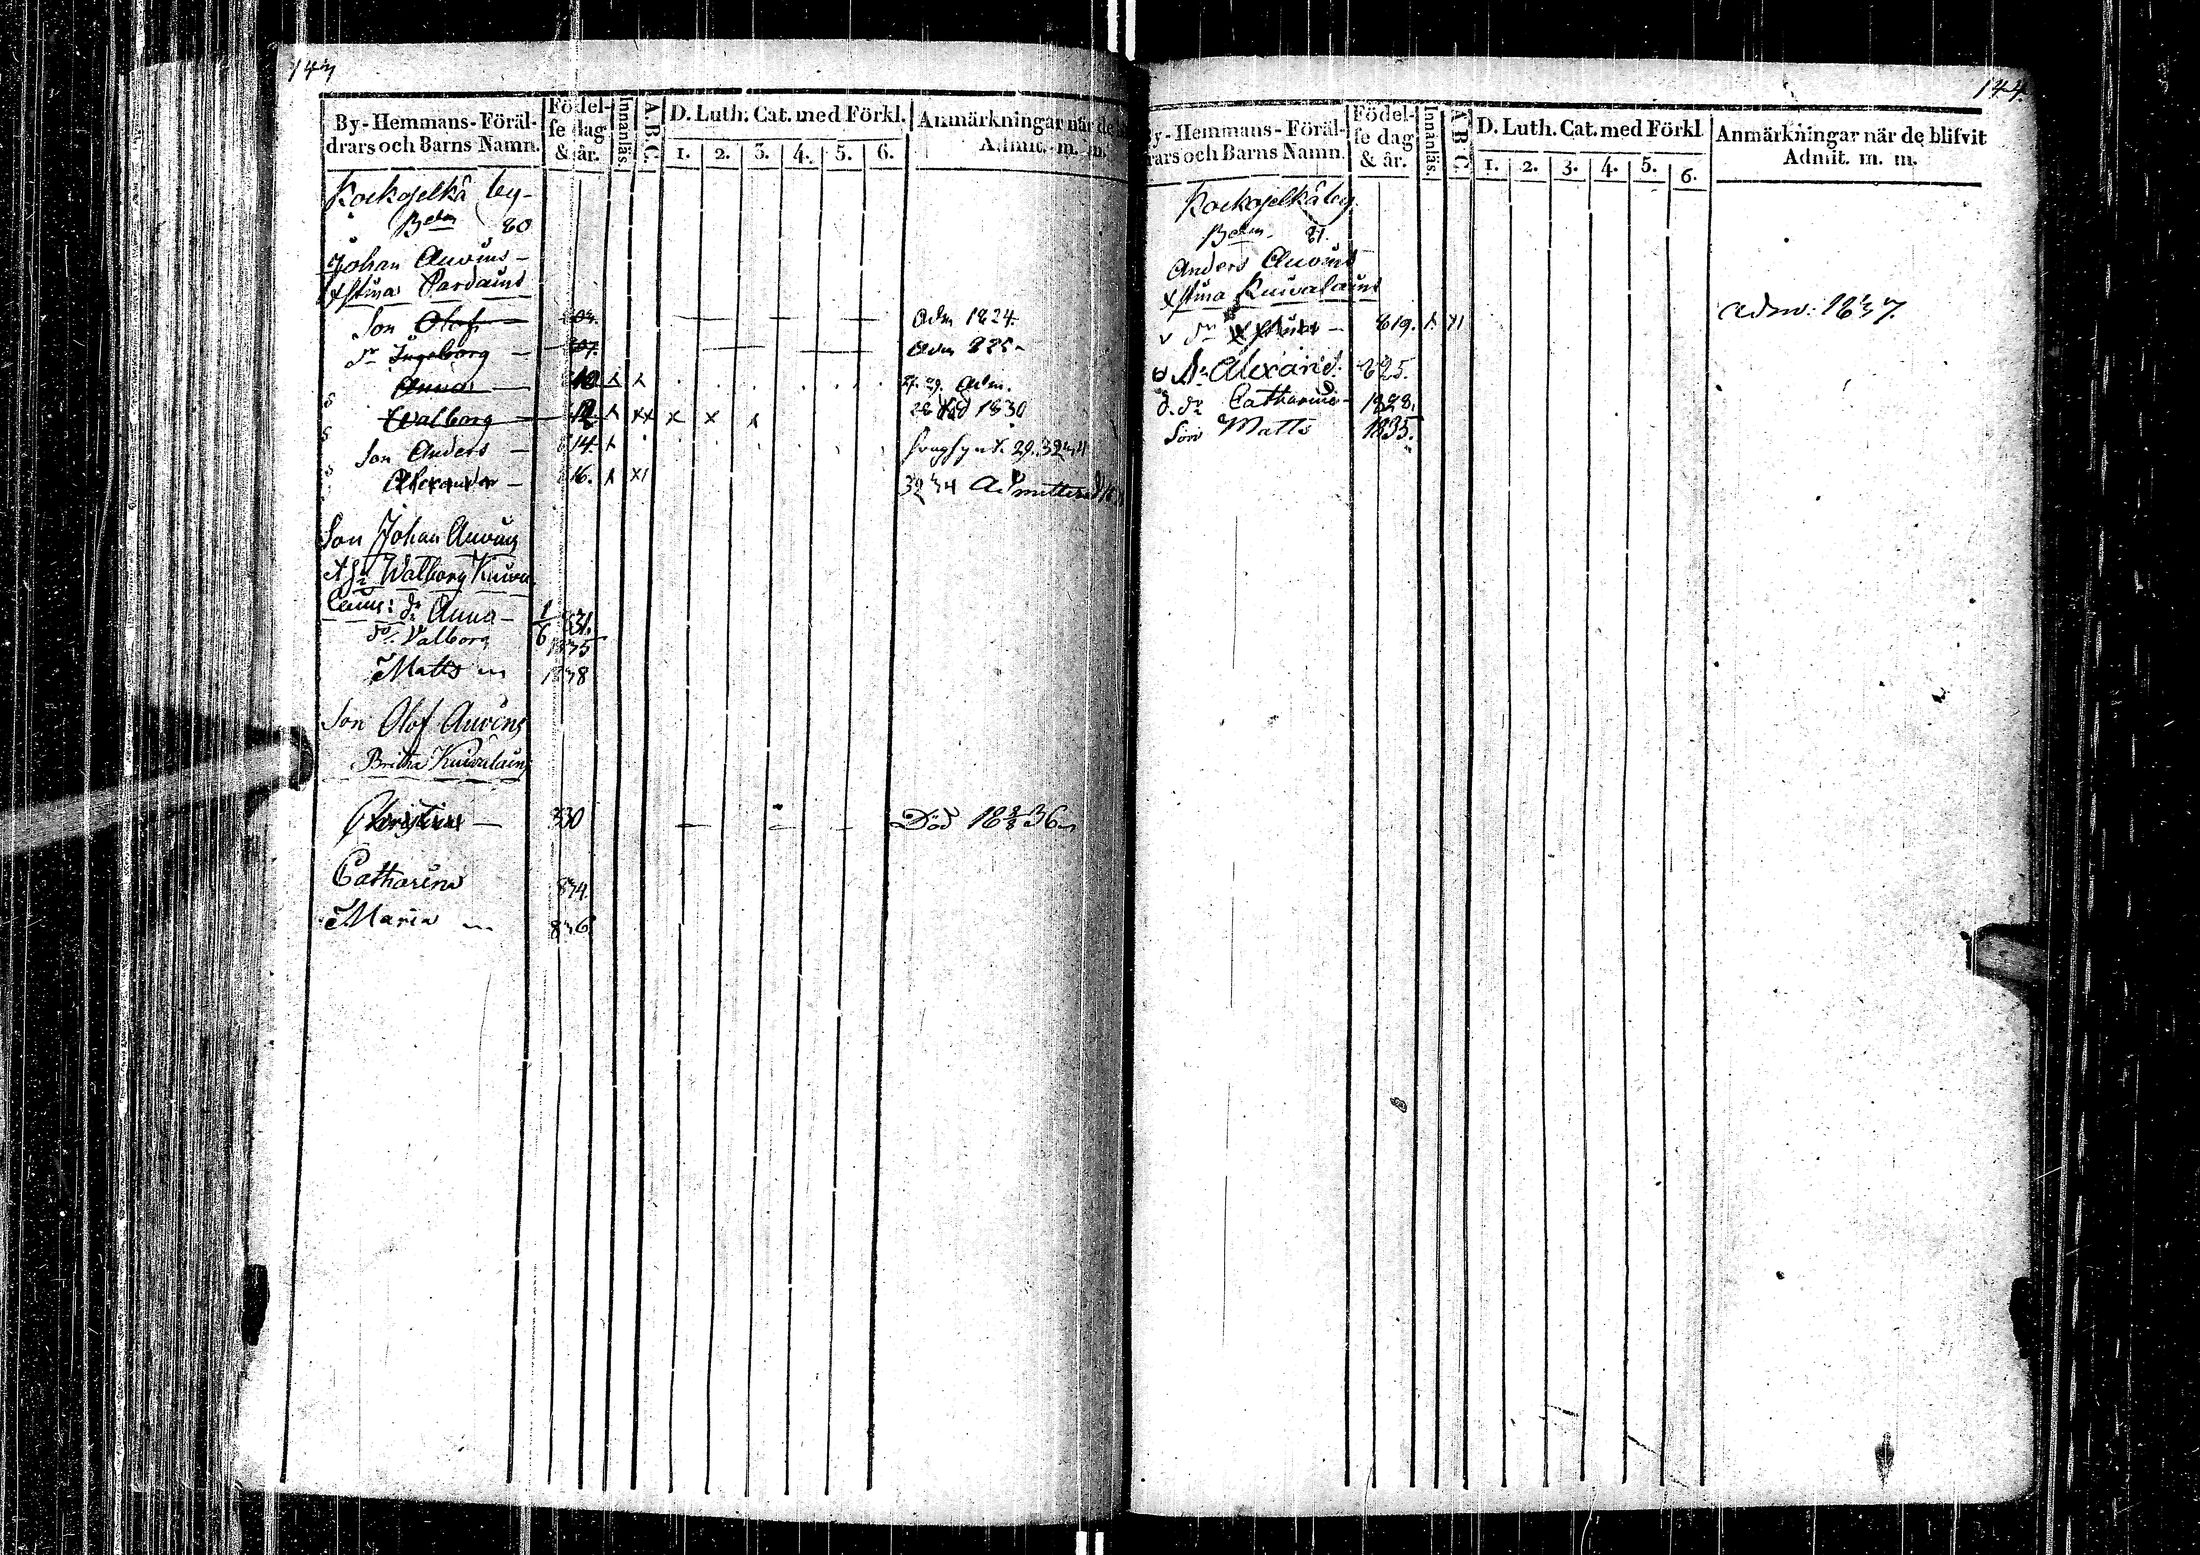 143
By- Hemmans- Föräl- drars och Barns Namn.
Födel- se dag & år.
Innanläs.
A.B.C.
D. Luth. Cat. med Förkl.
1. 2. 3. 4. 5. 6.
Anmärkningar när de
Admit. m. m.
Kockoselkä by-
80
Johan Auvins-
Pardains
Son Olof
Adm 1824.
dr Ingeborg
Adm 825
Anna
Adm.
Walborg
1830
Son Anders - 814.
Alexander - 816.
Admitterad
Son Johan Auvins
Walborg Kuiva
lains: dr Anna - 1/6 831.
dr Valborg 1835
Matts 1838
Son Olof Auvins
Britha Kuivalains
Christina - 830
Död 18 36
Catharina 834.
Maria 836
144.
By- Hemmans- Föräl- drars och Barns Namn.
Födel- se dag & år.
Innanläs.
A B C
D. Luth. Cat. med Förkl
1. 2. 3. 4. 5. 6.
Anmärkningar när de blifvit
Admit. m. m.
Kockoselkä by.
81.
Anders Auvins
Kuivalains
819.
adm: 1837.
Alexand. 825.
dr Catharina 1828.
Son Matts 1835.